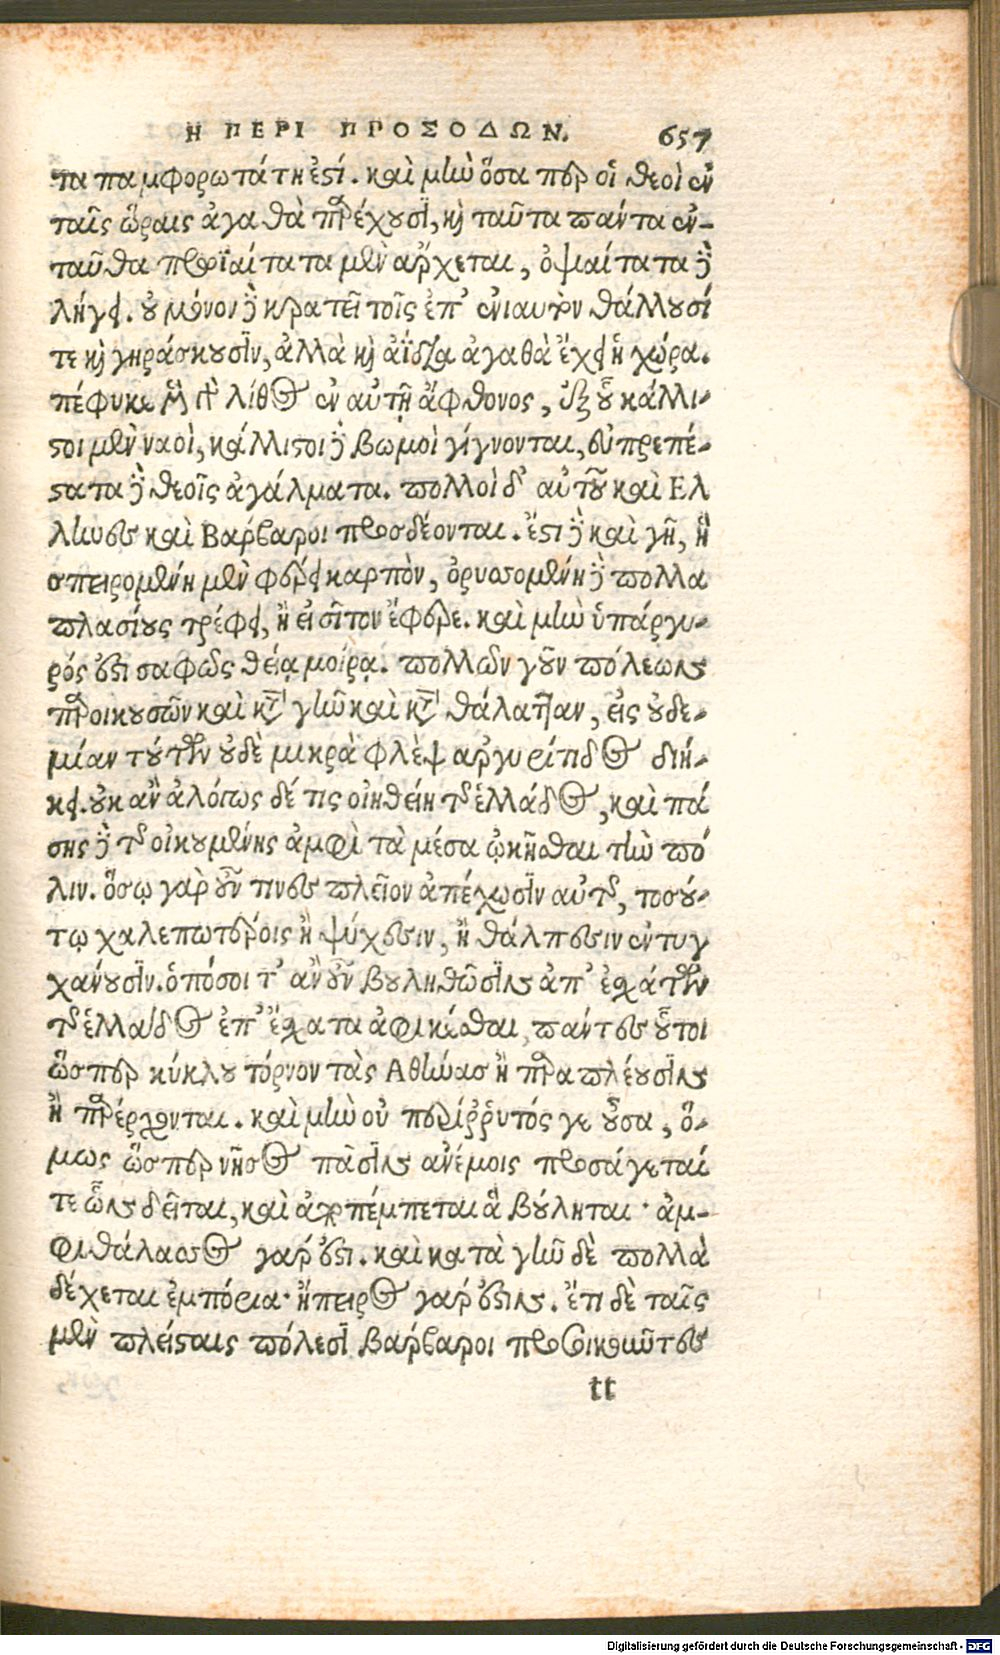 Η ΠΕΡΙ ΠΡΟΣΟΔΩΝ. 657
τα παμφορωτάτη ἐστί. καὶ μὴν ὅσα περ οἱ θεοὶ ἐν
ταῖς ὥραις ἀγαθὰ παρέχουσι, καὶ ταῦτα πάντα ἐν-
ταῦθα πρωϊαίτατα μὲν ἄρχεται, ὀψιαίτατα δὲ
λήγει. οὐ μόνον δὲ κρατεῖ τοῖς ἐπ' ἐνιαυτὸν θάλλουσί
τε καὶ γηράσκουσιν, ἀλλὰ καὶ ἀΐδια ἀγαθὰ ἔχει ἡ χώρα.
πέφυκε μὲν γὰρ λίθος ἐν αὐτῇ ἄφθονος, ἐξ οὗ κάλλι-
στοι μὲν ναοὶ, κάλλιστοι δὲ βωμοὶ γίγνονται, εὐπρεπέ-
στατα δὲ θεοῖς ἀγάλματα. πολλοὶ δ' αὐτοῦ καὶ Ελ
λήνες καὶ Βάρβαροι προσδέονται. ἔστι δὲ καὶ γῆ, ἣ
σπειρομένη μὲν φέρει καρπὸν, ὀρυσσομένη δὲ πολλα
πλασίους τρέφει, ἢ εἰ σῖτον ἔφερε. καὶ μὴν ὑπάργυ-
ρός ἐστι σαφῶς θείᾳ μοίρᾳ. πολλῶν γοῦν πόλεων
παροικουσῶν καὶ κατὰ γῆν καὶ κατὰ θάλατταν, εἰς οὐδε-
μίαν τούτων οὐδὲ μικρὰ φλὲψ ἀργυρίτιδος διή-
κει. οὐκ ἂν ἀλόγως δέ τις οἰηθείη τῆς ἑλλάδος, καὶ πά
σης δὲ τῆς οἰκουμένης ἀμφὶ τὰ μέσα ᾠκῆσθαι τὴν πό
λιν. ὅσῳ γὰρ οὖν τινες πλεῖον ἀπέχωσιν αὐτῆς, τοσού-
τῳ χαλεπωτέροις ἢ ψύχεσιν, ἢ θάλπεσιν ἐντυγ
χάνουσιν. ὁπόσοι τ' ἂν οὖν βουληθῶσιν ἀπ' ἐσχάτων
τῆς ἑλλάδος ἐπ' ἔσχατα ἀφικέσθαι, πάντες οὗτοι
ὥσπερ κύκλου τόρνον τὰς Αθήνας ἢ παραπλέουσιν
ἢ παρέρχονται. καὶ μὴν οὐ περίῤῥυτός γε οὖσα, ὅ-
μως ὥσπερ νῆσος πᾶσιν ἀνέμοις προσάγεταί
τε ὧν δεῖται, καὶ ἀποπέμπεται ἃ βούληται· ἀμ-
φιθάλασσος γάρ ἐστι. καὶ κατὰ γῆν δὲ πολλὰ
δέχεται ἐμπόρια· ἤπειρος γάρ ἐστιν. ἔτι δὲ ταῖς
μὲν πλείσταις πόλεσι βάρβαροι προσοικοῦντες
tt
Digitalisierung gefördert durch die Deutsche Forschungsgemeinschaft - DFG